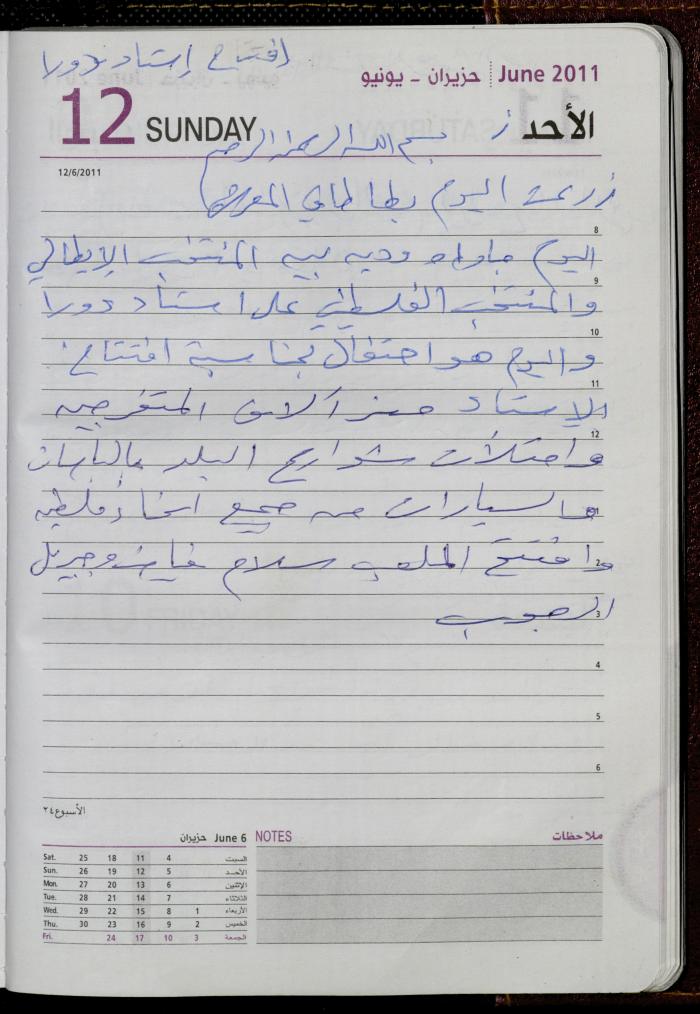 افتتاح إستاد دورا
حزيران - يونيو June 2011
12 SUNDAY الأحد
بسم الله الرحمن الرحيم
12/6/2011
زرعت اليوم بطاطا في
8
اليوم مباراه وديه بين المنتخب الإيطالي
9
والمنتخب الفلسطيني على استاد دورا
10
واليوم هو احتفال بمناسبة افتتاح
11
الاستاد آلاف المتفرجين
12
وامتلأت شوارع البلد بالباصات
والسيارات من جميع انحاء فلسطين
2
وافتتح الملعب سلام فياض وجبريل
3
الرجوب
4
5
6
الأسبوع ٢٤
June 6 حزيران NOTES ملاحظات
Sat. 25 18 11 4 السبت
Sun. 26 19 12 5 الأحد
Mon. 27 20 13 6 الإثنين
Tue. 28 21 14 7 الثلاثاء
Wed. 29 22 15 8 1 الأربعاء
Thu. 30 23 16 9 2 الخميس
Fri. 24 17 10 3 الجمعة